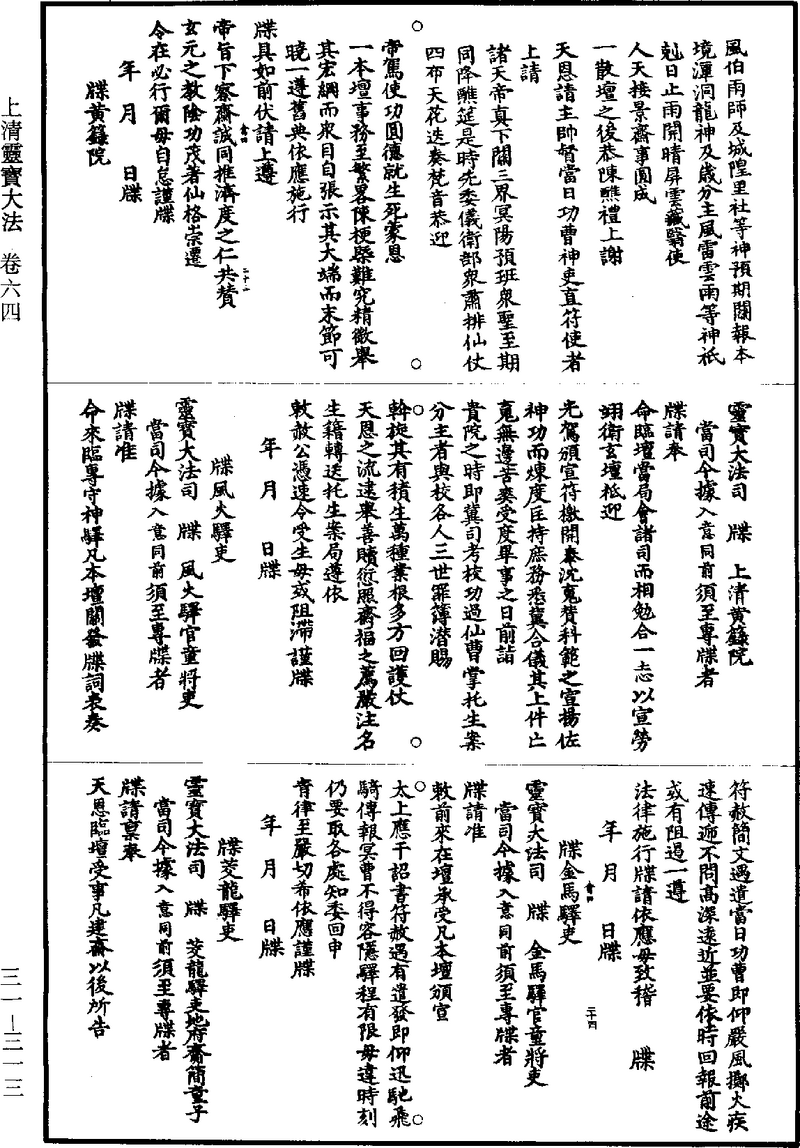 風伯雨師及城隍里社等神預期關報本
境潭洞龍神及歲分主風雷雲雨等神祇
剋日止雨開晴屏雲藏翳使
人天接景齋事圓成
一散壇之後恭陳醮禮上謝
天恩請主帥督當日功曹神吏直符使者
上請
諸天帝真下關三界冥陽預班衆聖至期
同降醮筵是時先委儀衛部衆肅排仙仗
四布天花迭奏梵音恭迎
帝駕使功圓德就生死蒙恩
一本壇事務至繁畧陳梗槩難究精微舉
其宏綱而衆目自張示其大端而末節可
曉一遵舊典依應施行
牒具如前伏請上遵
帝旨下察齋誠同推濟度之仁共贊
玄元之教陰功茂著仙格崇遷
令在必行爾毋自怠謹牒
年 月 日牒
牒黃籙院
靈寶大法司 牒 上清黃籙院
當司今據入意同前須至專牒者
牒請奉
命臨壇當局會諸司而相勉合一志以宣勞
翊衛玄壇祗迎
光駕頒宣符檄開奉沈冤贊科範之宣揚佐
神功而煉度臣持庶務悉冀合儀其上件亡
冤無邊苦爽受度畢事之日前詣
貴院之時即冀司考校功過仙曹掌托生案
分主者與校各人三世罪簿潜賜
斡旋其有積生萬種業根多方回護仗
天恩之流遠舉善贖愆照齋福之薦嚴注名
生籍轉送托生案局遵依
敕赦公憑速令受生毋或阻滯謹牒
年 月 日牒
牒風火驛吏
靈寶大法司 牒 風火驛官童將吏
當司今據入意同前須至專牒者
牒請准
命來臨專守神驛凡本壇關發牒詞表奏
符赦簡文遇遣當日功曹即仰嚴風擲火疾
速傳遞不問高深遠近並要依時回報前途
或有阻遏一遵
法律施行牒請依應毋致稽 牒
年 月 日牒
牒金馬驛吏
靈寶大法司 牒 金馬驛官童將吏
當司今據入意同前須至專牒者
牒請准
敕前來在壇承受凡本壇頒宣
太上應干詔書符赦遇有遣發即仰迅馳飛
騎傳報冥曹不得容隱驛程有限毋違時刻
仍要取各處知委回申
青律至嚴切希依應謹牒
年 月 日牒
牒茭龍驛吏
靈寶大法司 牒 茭龍驛吏地府齋簡童子
當司今據入意同前須至專牒者
牒請稟奉
天恩臨壇受事凡建齋以後所告
上清靈寶大法 卷六四
三一—三一三